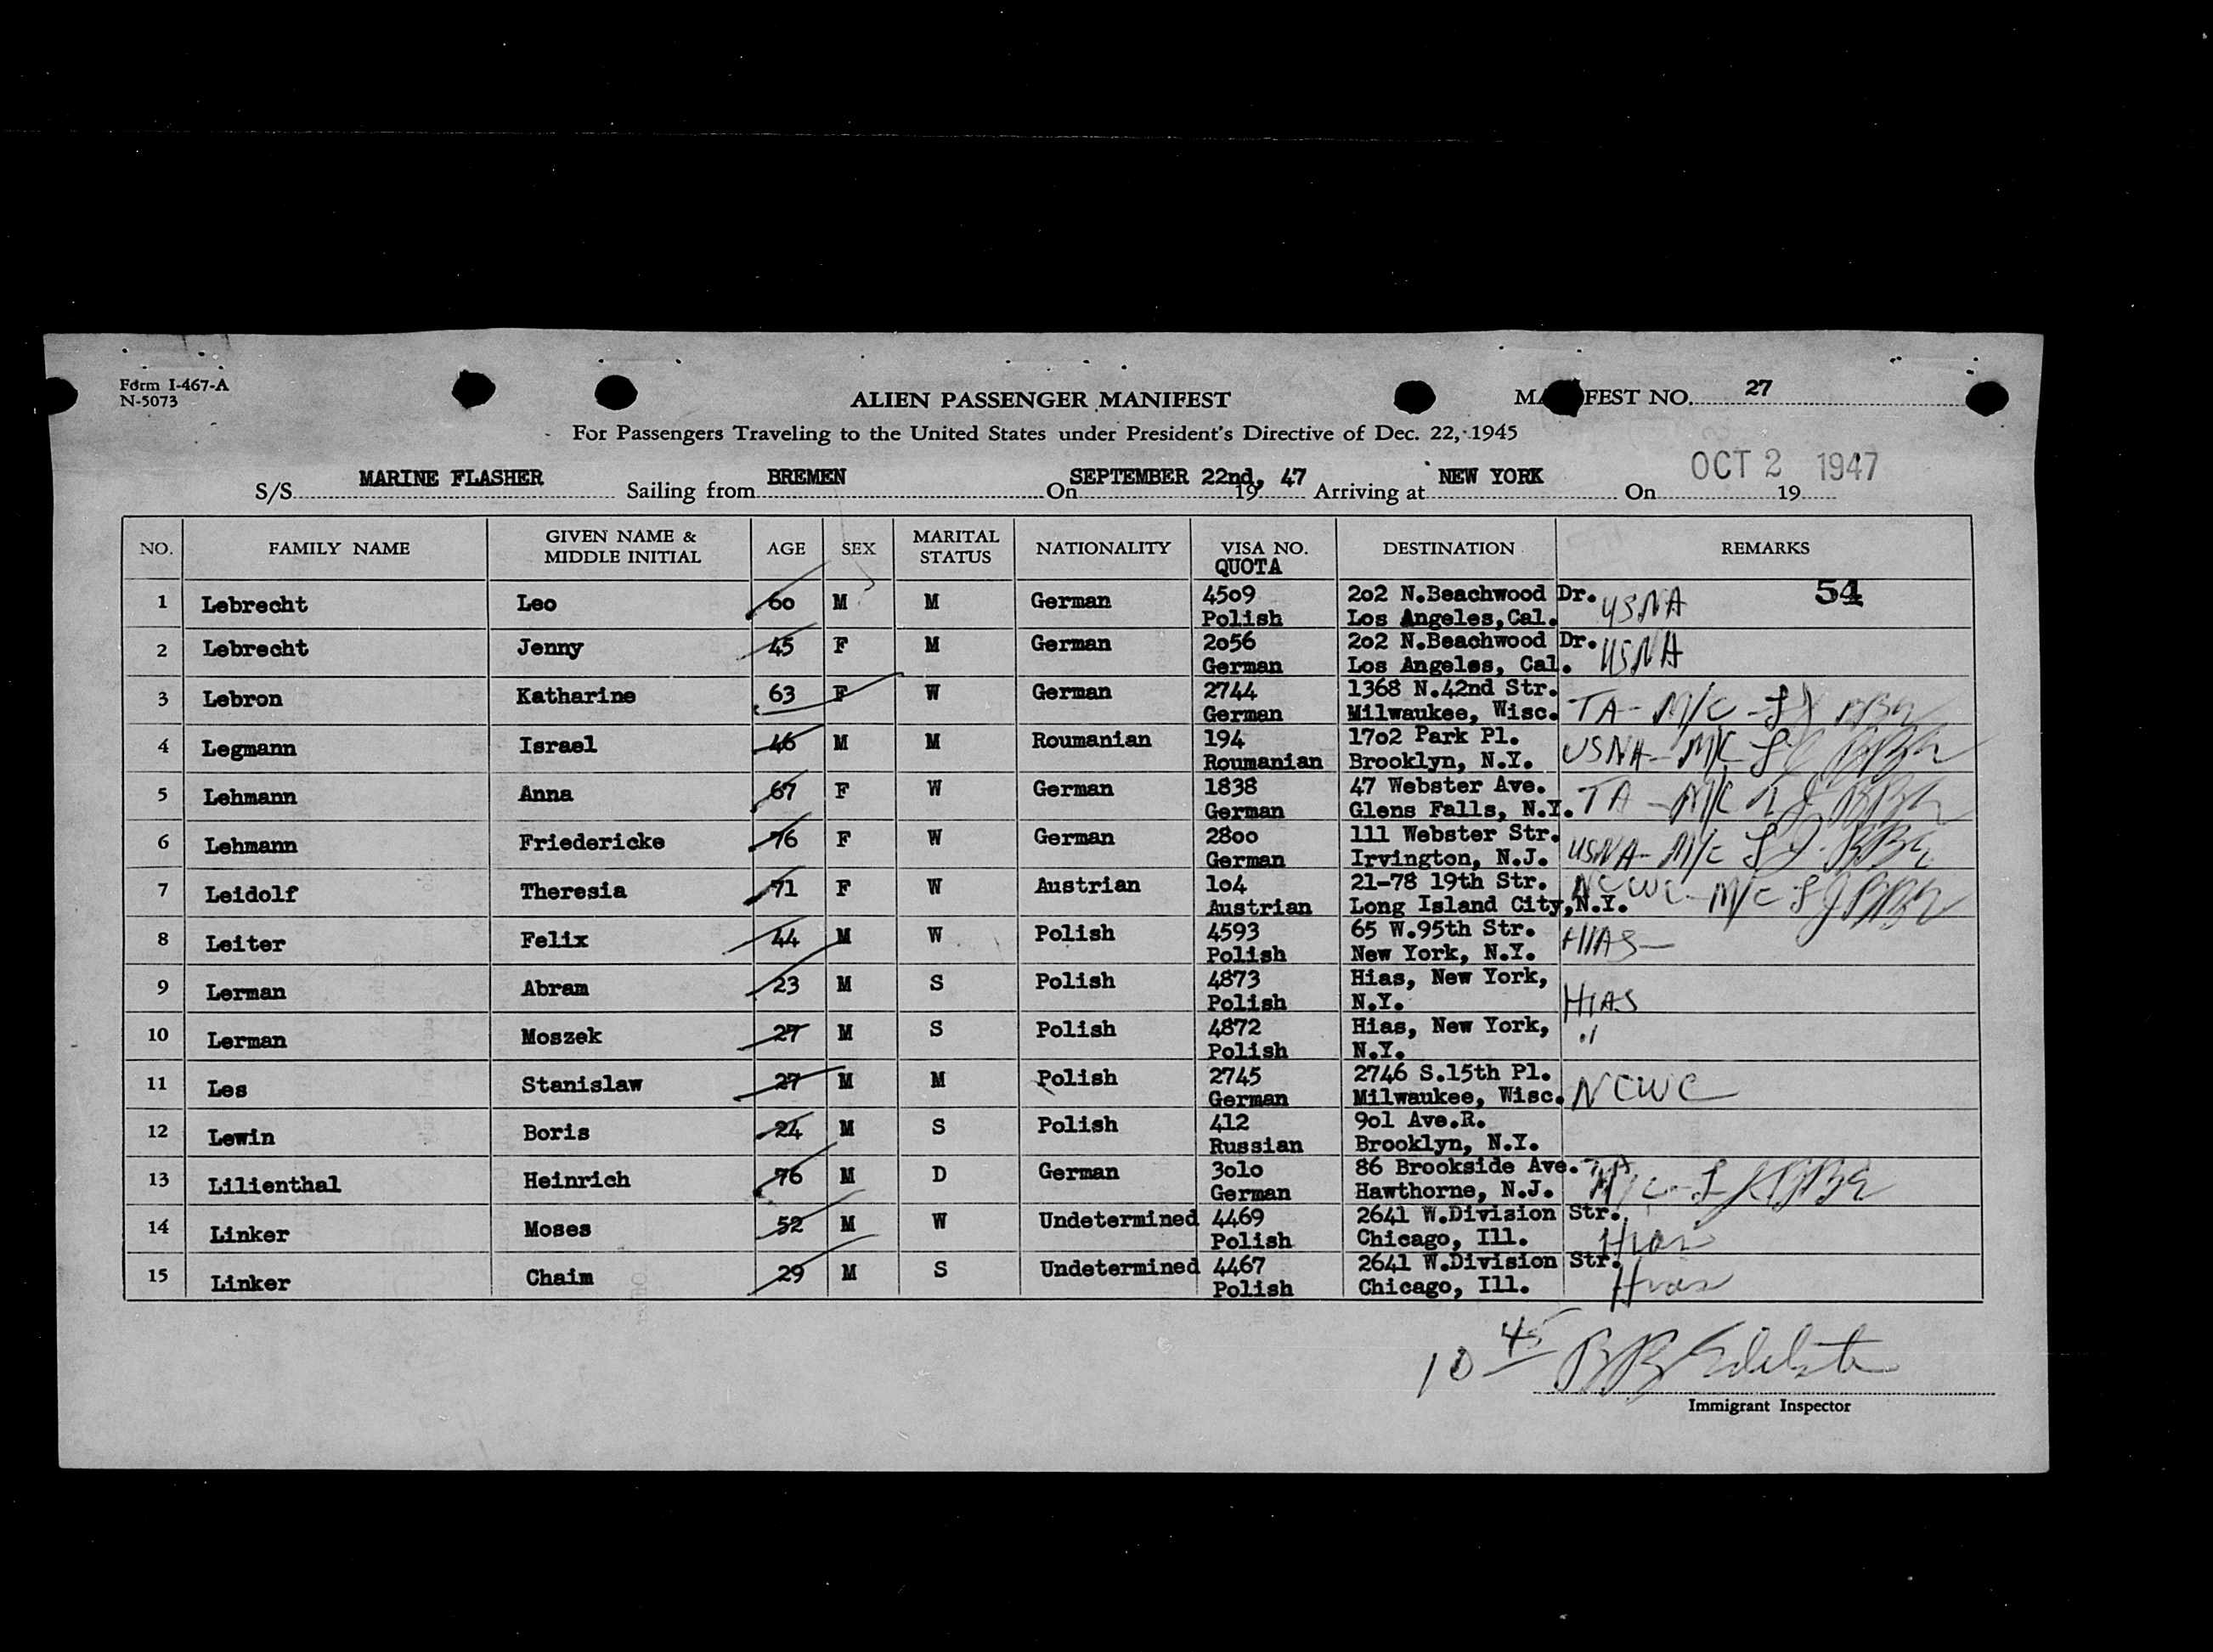 Form I-467-A
N-5073
ALIEN PASSENGER MANIFEST
MA FEST NO. 27
For Passengers Traveling to the United States under President's Directive of Dec. 22, 1945
S/S MARINE FLASHER Sailing from BREMEN On SEPTEMBER 22nd, 19 47 Arriving at NEW YORK On OCT 2 1947 19
NO. FAMILY NAME GIVEN NAME & MIDDLE INITIAL AGE SEX MARITAL STATUS NATIONALITY VISA NO. QUOTA DESTINATION REMARKS
1 Lebrecht Leo 60 M M German 4509 2o2 N.Beachwood Dr. USNA 54
Polish Los Angeles,Cal.
2 Lebrecht Jenny 45 F M German 2o56 2o2 N.Beachwood Dr. USNA
German Los Angeles, Cal.
3 Lebron Katharine 63 F W German 2744 1368 N.42nd Str. TA - M/C
German Milwaukee, Wisc.
4 Legmann Israel 46 M M Roumanian 194 17o2 Park Pl. USNA - M/C
Roumanian Brooklyn, N.Y.
5 Lehmann Anna 67 F W German 1838 47 Webster Ave. TA - M/C
German Glens Falls, N.Y.
6 Lehmann Friedericke 76 F W German 28oo 111 Webster Str. USNA - M/C
German Irvington, N.J.
7 Leidolf Theresia 71 F W Austrian 1o4 21-78 19th Str. NCWC - M/C
Austrian Long Island City,N.Y.
8 Leiter Felix 44 M W Polish 4593 65 W.95th Str. HIAS
Polish New York, N.Y.
9 Lerman Abram 23 M S Polish 4873 Hias, New York, HIAS
Polish N.Y.
10 Lerman Moszek 27 M S Polish 4872 Hias, New York, "
Polish N.Y.
11 Les Stanislaw 27 M M Polish 2745 2746 S.15th Pl. NCWC
German Milwaukee, Wisc.
12 Lewin Boris 24 M S Polish 412 9o1 Ave.R.
Russian Brooklyn, N.Y.
13 Lilienthal Heinrich 76 M D German 3o1o 86 Brookside Ave. TA M/C
German Hawthorne, N.J.
14 Linker Moses 52 M W Undetermined 4469 2641 W.Division Str. Hias
Polish Chicago, Ill.
15 Linker Chaim 29 M S Undetermined 4467 2641 W.Division Str. Hias
Polish Chicago, Ill.
10 45
Immigrant Inspector